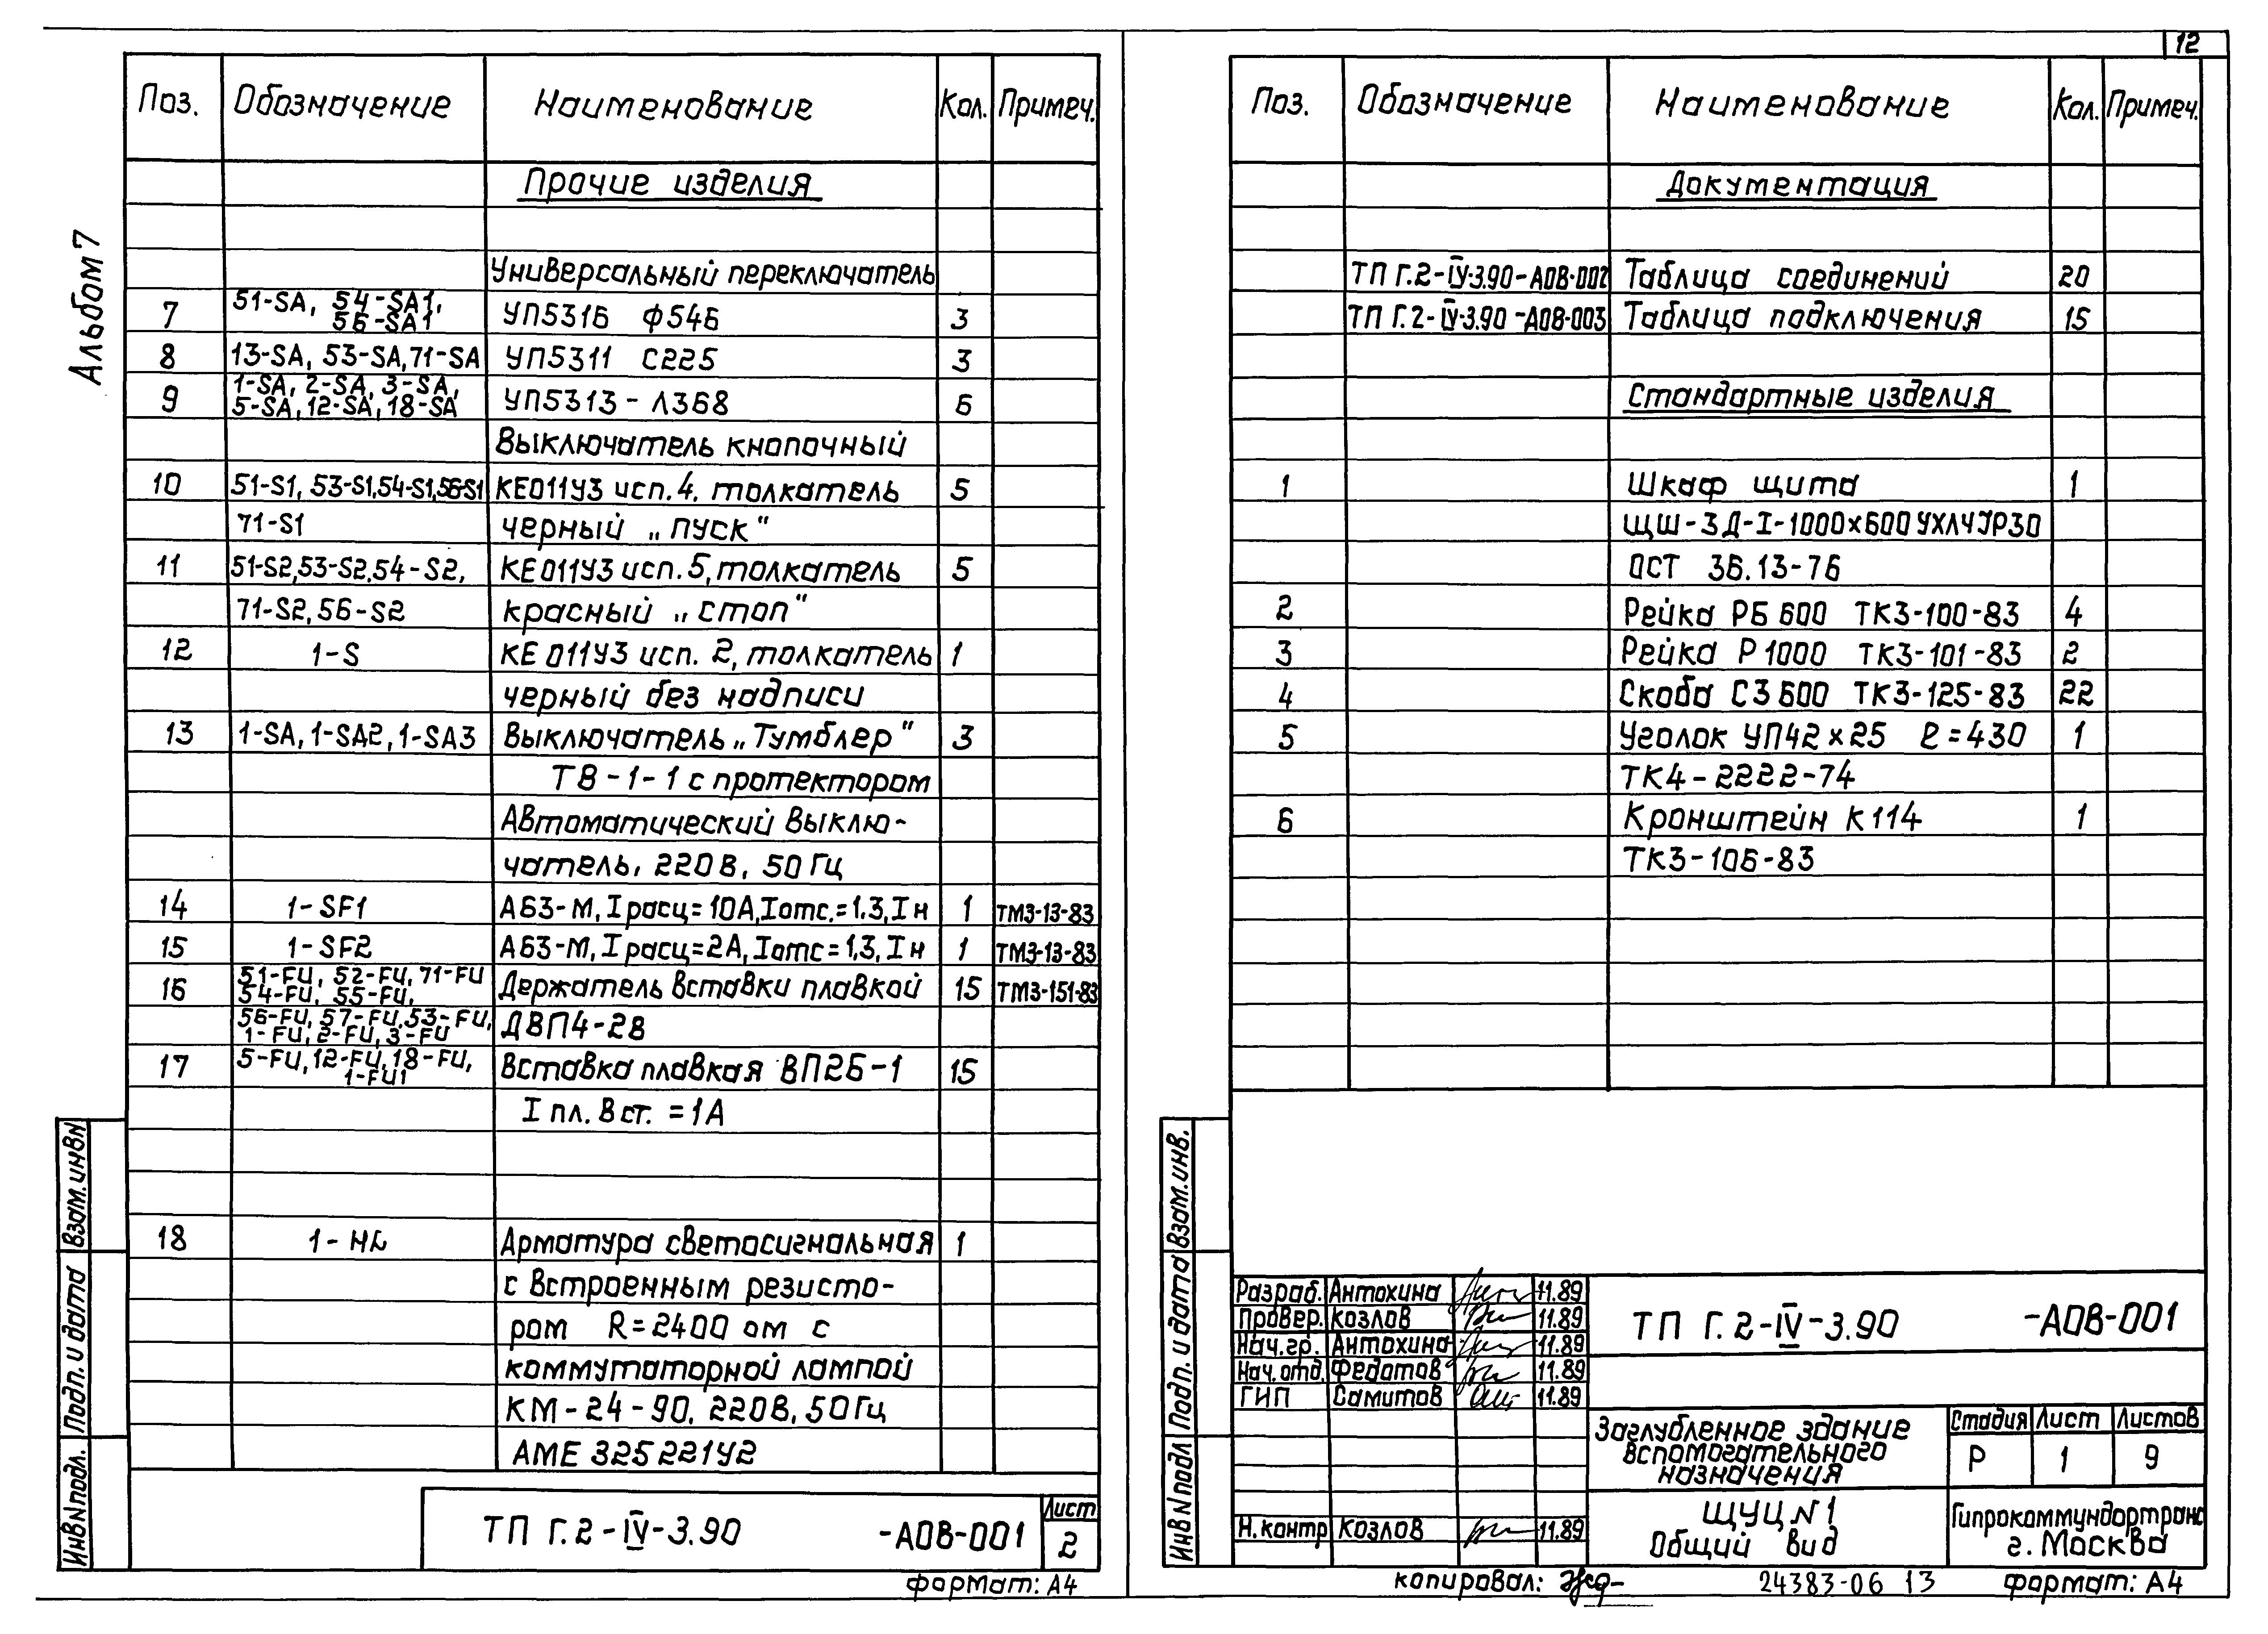 Альбом 7
Поз. Обозначение Наименование Кол. Примеч.
Прочие изделия
Универсальный переключатель
7 51-SA, 54-SA1, 56-SA1 УП5316 Ф546 3
8 13-SA, 53-SA, 71-SA УП5311 С225 3
9 1-SA, 2-SA, 3-SA, 5-SA, 12-SA, 18-SA УП5313-Л368 6
Выключатель кнопочный
10 51-S1, 53-S1, 54-S1, 56-S1 КЕ011У3 исп. 4, толкатель 5
71-S1 черный „пуск"
11 51-S2, 53-S2, 54-S2, КЕ011У3 исп. 5, толкатель 5
71-S2, 56-S2 красный „стоп"
12 1-S КЕ011У3 исп. 2, толкатель 1
черный без надписи
13 1-SA, 1-SA2, 1-SA3 Выключатель „Тумблер" 3
ТВ-1-1 с протектором
Автоматический выклю-
чатель, 220В, 50Гц
14 1-SF1 А63-М, I расц=10А, Iотс.=1.3, Iн 1 ТМ3-13-83
15 1-SF2 А63-М, I расц=2А, Iотс=1,3, Iн 1 ТМ3-13-83
16 51-FU, 52-FU, 71-FU 54-FU, 55-FU, Держатель вставки плавкой 15 ТМ3-151-83
56-FU, 57-FU, 53-FU, 1-FU, 2-FU, 3-FU ДВП4-2В
17 5-FU, 12-FU, 18-FU, 1-FU1 Вставка плавкая ВП2Б-1 15
I пл. вст. = 1А
18 1-HL Арматура светосигнальная 1
с встроенным резисто-
ром R=2400 ом с
коммутаторной лампой
КМ-24-90, 220В, 50Гц
АМЕ 325221У2
Взам.инв N
Подп. и дата
Инв N подл.
ТП Г.2-IV-3.90 -АОВ-001
Лист
2
формат: А4
12
Поз. Обозначение Наименование Кол. Примеч.
Документация
ТП Г.2-IV-3.90-АОВ-002 Таблица соединений 20
ТП Г.2-IV-3.90-АОВ-003 Таблица подключения 15
Стандартные изделия
1 Шкаф щита 1
ЩШ-ЗД-I-1000х600 УХЛЧ IР30
ОСТ 36.13-76
2 Рейка РБ 600 ТК3-100-83 4
3 Рейка Р1000 ТК3-101-83 2
4 Скоба С3 600 ТК3-125-83 22
5 Уголок УП42х25 ℓ=430 1
ТК4-2222-74
6 Кронштейн К114 1
ТК3-106-83
Взам.инв.
Подп. и дата
Инв N подл
Разраб. Антохина 11.89
Провер. Козлов 11.89
Нач.гр. Антохина 11.89
Нач.отд. Федотов 11.89
ГИП Самитов 11.89
Н.контр Козлов 11.89
ТП Г.2-IV-3.90 -АОВ-001
Заглубленное здание
вспомогательного
назначения
Стадия Лист Листов
Р 1 9
ЩУЦ N1
Общий вид
Гипрокоммундортранс
г. Москва
копировал: 24383-06 13 формат: А4